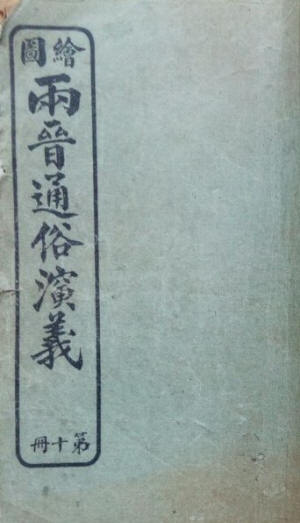 繪圖
兩晉通俗演義
第十冊